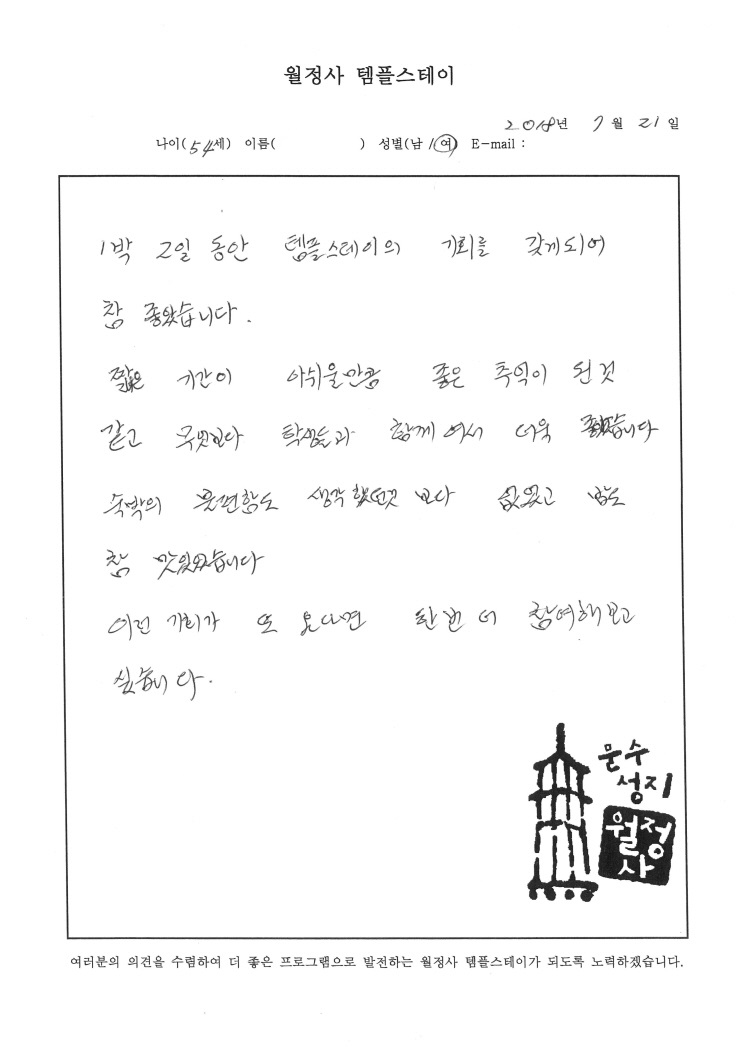 월정사 템플스테이
2018년 7월 21일
나이(54세) 이름( ) 성별(남/여) E-mail :
1박 2일 동안 템플스테이의 기회를 갖게되어
참 좋았습니다.
짧은 기간이 아쉬울만큼 좋은 추억이 된것
같고 무엇보다 학생들과 함께여서 더욱 좋았습니다
숙박의 불편함도 생각했던것 보다 없었고 밥도
참 맛있었습니다
이런 기회가 또 온다면 한번 더 참여해보고
싶습니다.
문수
성지
월정
사
여러분의 의견을 수렴하여 더 좋은 프로그램으로 발전하는 월정사 템플스테이가 되도록 노력하겠습니다.